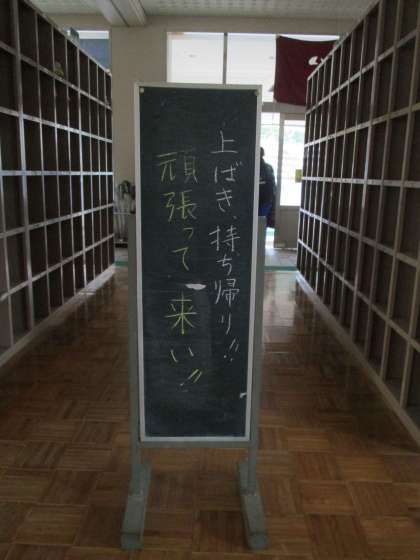 上ばき、持ち帰り!!
頑張って来い!!